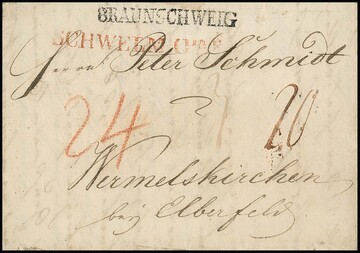 BRAUNSCHWEIG
Herrn Peter Schmidt
24
20
Wermelskirchen
bey Elberfeld